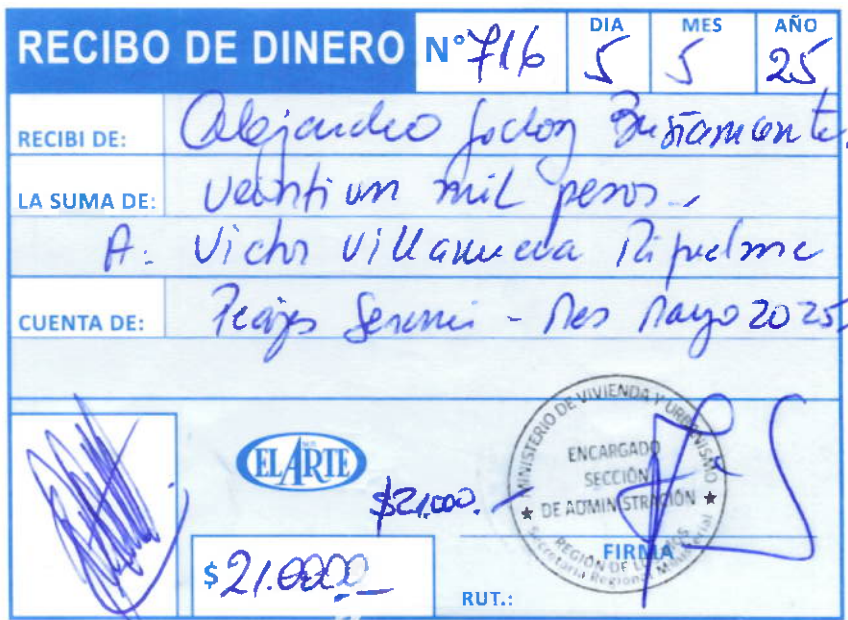 RECIBO DE DINERO N° 716 DIA 5 MES 5 AÑO 25
RECIBI DE: Alejandro Godoy Bustamante.
LA SUMA DE: veintiun mil pesos.-
A: Victor Villanueva Riquelme
CUENTA DE: Peajes Seremi - Mes Mayo 2025
MINISTERIO DE VIVIENDA Y URBANISMO
ENCARGADO
SECCIÓN
DE ADMINISTRACIÓN
REGIÓN DE LOS
Secretaria Regional Ministerial
EL ARTE
$21.000.-
FIRMA
$21.000
RUT.: